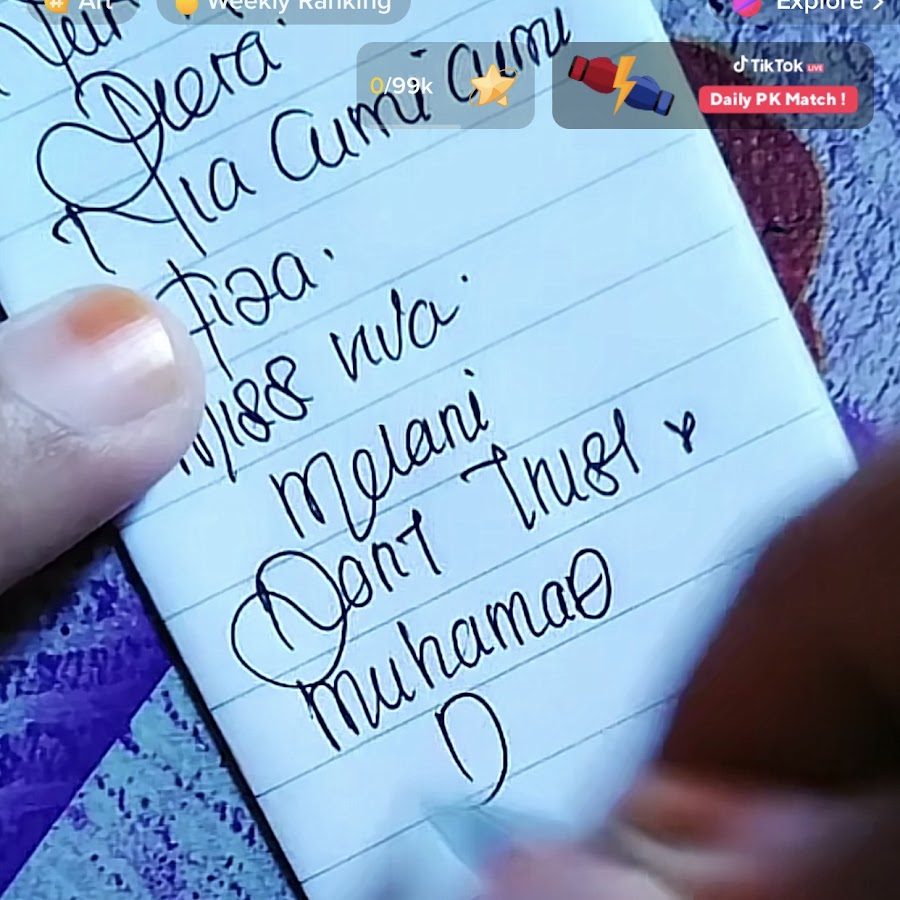 Art
Weekly Ranking
Explore >
0/99k
TikTok LIVE
Daily PK Match !
Dera.
Nia Cumi Cumi
Fiza.
Miss viva.
Melani
Don't Trust
Muhamad
D